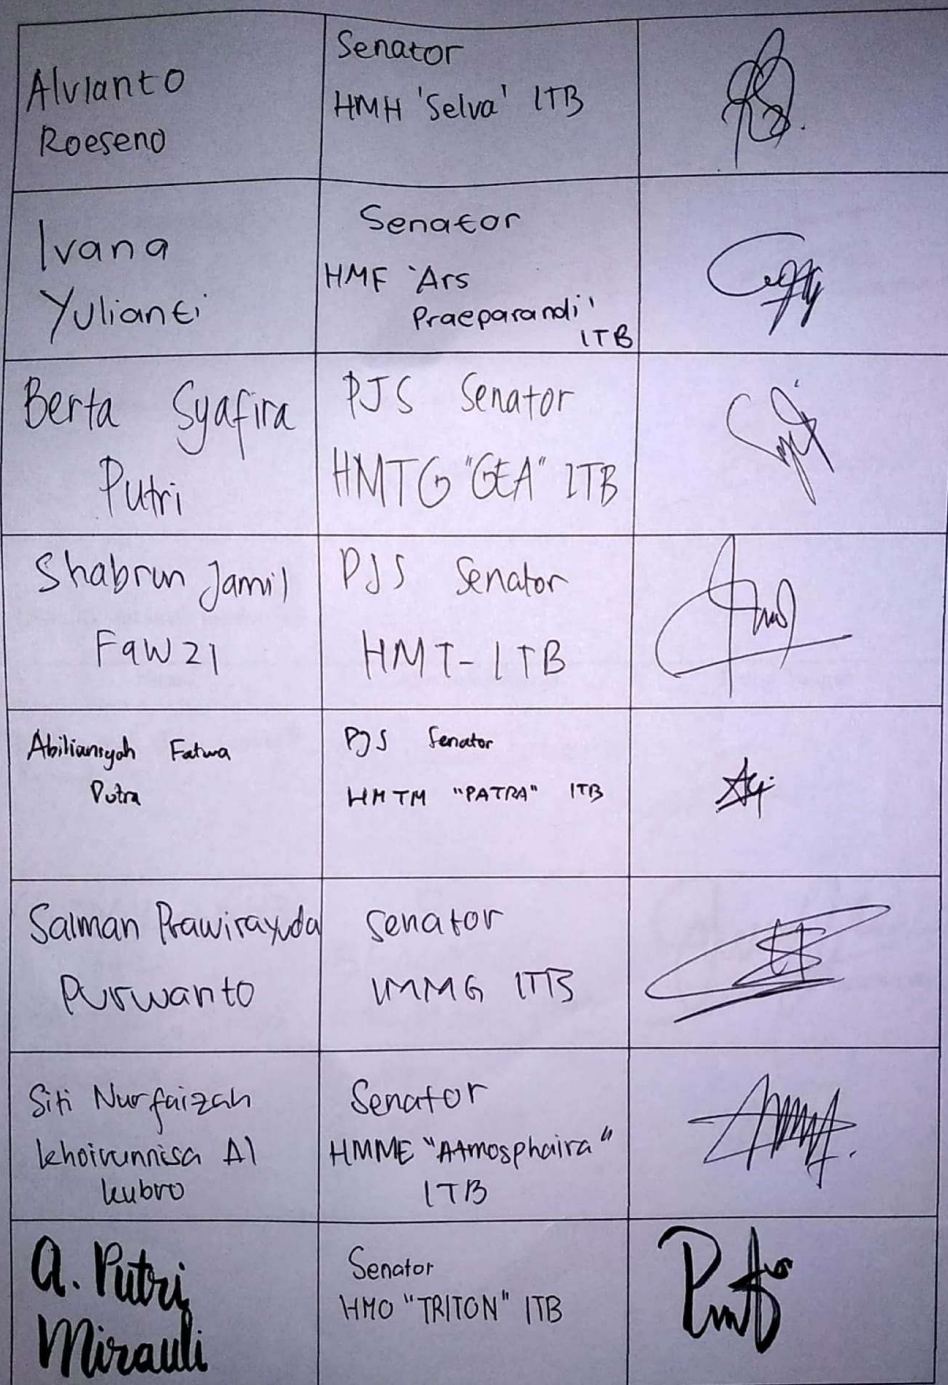 Alvianto
Roeseno
Senator
HMH 'Selva' ITB
Ivana
Yulianti
Senator
HMF 'Ars
Praeparandi'
ITB
Berta Syafira
Putri
PJS Senator
HMTG "GEA" ITB
Shabrun Jamil
Fawzi
PJS Senator
HMT-ITB
Abiliansyah Fatwa
Putra
PJS Senator
HMTM "PATRA" ITB
Salman Prawirayuda
Purwanto
Senator
IMMG ITB
Siti Nurfaizah
Khoirunnisa Al
Kubro
Senator
HMME "Atmosphaira"
ITB
A. Putri
Mirauli
Senator
HMO "TRITON" ITB